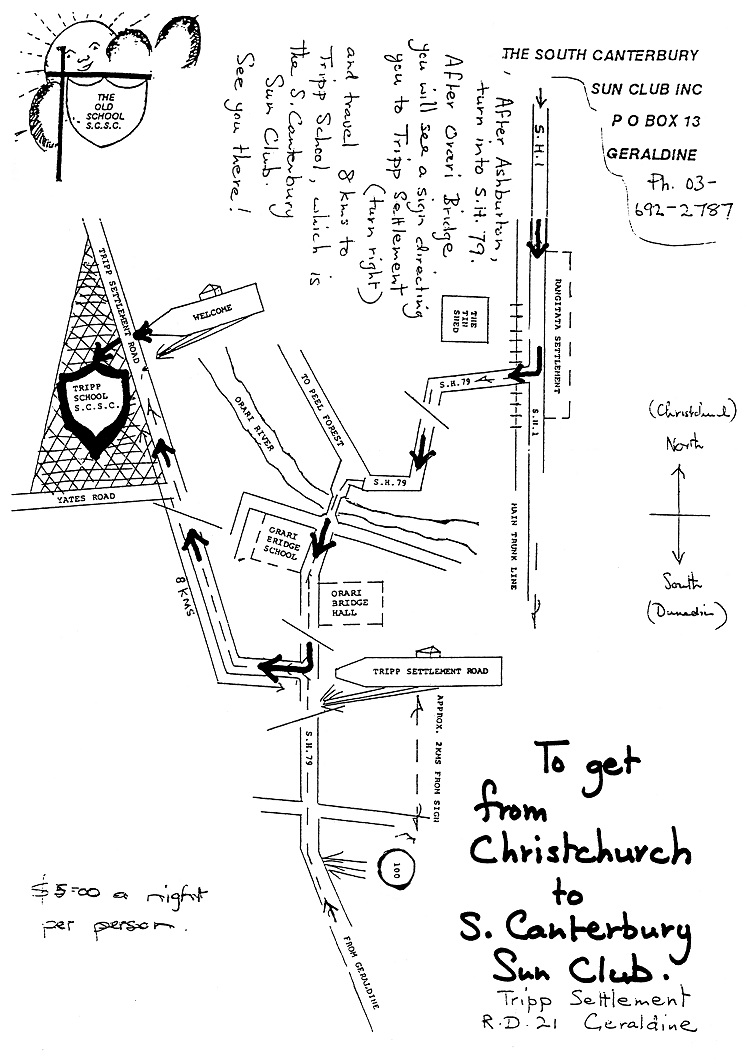 THE SOUTH CANTERBURY
SUN CLUB INC
P O BOX 13
GERALDINE
Ph. 03-
692-2787
THE
OLD
SCHOOL
S.C.S.C.
After Ashburton,
turn into S.H. 79.
After Orari Bridge
you will see a sign directing
you to Tripp Settlement
(turn right)
and travel 8 kms to
Tripp School, which is
the S. Canterbury
Sun Club.
See you there!
S.H.1
RANGITATA SETTLEMENT
THE
TIN
SHED
S.H.79
S.H.1
MAIN TRUNK LINE
(Christchurch)
North
South
(Dunedin)
TRIPP SETTLEMENT ROAD
WELCOME
TRIPP
SCHOOL
S.C.S.C.
YATES ROAD
ORARI RIVER
TO PEEL FOREST
S.H.79
ORARI
BRIDGE
SCHOOL
ORARI
BRIDGE
HALL
8 KMS
TRIPP SETTLEMENT ROAD
APPROX. 2KMS FROM SIGN
S.H.79
100
FROM GERALDINE
$5-00 a night
per person.
To get
from
Christchurch
to
S. Canterbury
Sun Club.
Tripp Settlement
R.D. 21 Geraldine